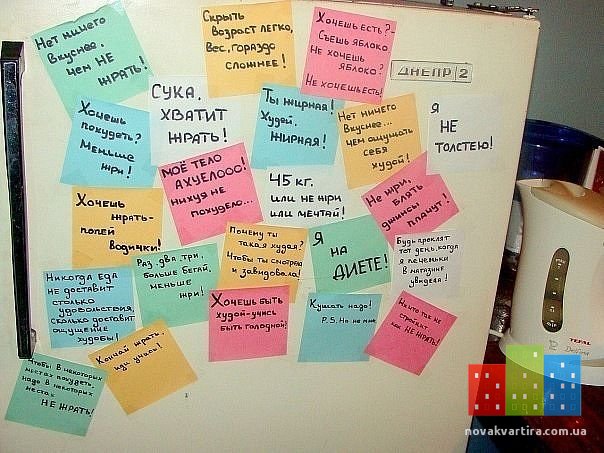 Нет ничего
вкуснее,
чем НЕ
ЖРАТЬ!
Скрыть
возраст легко,
вес, гораздо
сложнее!
Хочешь есть?-
Съешь яблоко
Не хочешь
яблоко?
Не хочешь есть!
ДНЕПР 2
Хочешь
похудеть?
Меньше
жри!
СУКА,
ХВАТИТ
ЖРАТЬ!
Ты жирная!
Худей,
ЖИРНАЯ!
Нет ничего
вкуснее...
чем ощущать
себя
худой!
Я
НЕ
ТОЛСТЕЮ!
Хочешь
жрать-
попей
водички!
МОЁ ТЕЛО
АХУЕЛООО!
нихуя не
похудело...
45 кг.
или не жри
или мечтай!
Не жри,
блять
джинсы
плачут!
Никогда еда
не доставит
столько
удовольствия,
сколько доставит
ощущение
худобы!
Раз, два, три,
больше бегай,
меньше
жри!
Почему ты
такая худая?
Чтобы ты смотрела
и завидовала!
Я
НА
ДИЕТЕ!
Будь проклят
тот день, когда
я печеньки
в магазине
увидела!
Чтобы в некоторых
местах похудеть,
надо в некоторых
местах
НЕ ЖРАТЬ!
Кончай жрать,
иди учись!
Хочешь быть
худой-учись
быть голодной!
Кушать надо!
P.S. Но не мне
Ничто так не
стройнит
как НЕ ЖРАТЬ!
TEFAL
novakvartira.com.ua